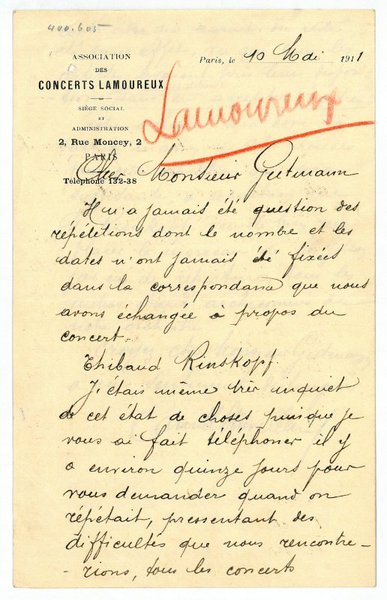 400.605
ASSOCIATION
DES
CONCERTS LAMOUREUX
SIÈGE SOCIAL
ET
ADMINISTRATION
2, Rue Moncey, 2
PARIS
Téléphone 132-38
Paris, le 10 Mai 1911
Lamoureux
Cher Monsieur Gutmann
Il n'a jamais été question des
répétitions dont le nombre et les
dates n'ont jamais été fixées
dans la correspondance que nous
avons échangée à propos du
concert.
Thibaud Kinskopf.
J'étais même hier inquiet
de cet état de choses puisque je
vous ai fait téléphoner il y
a environ quinze jours pour
vous demander quand on
répétait, pressentant des
difficultés que nous rencontre-
-rions, tous les concerts